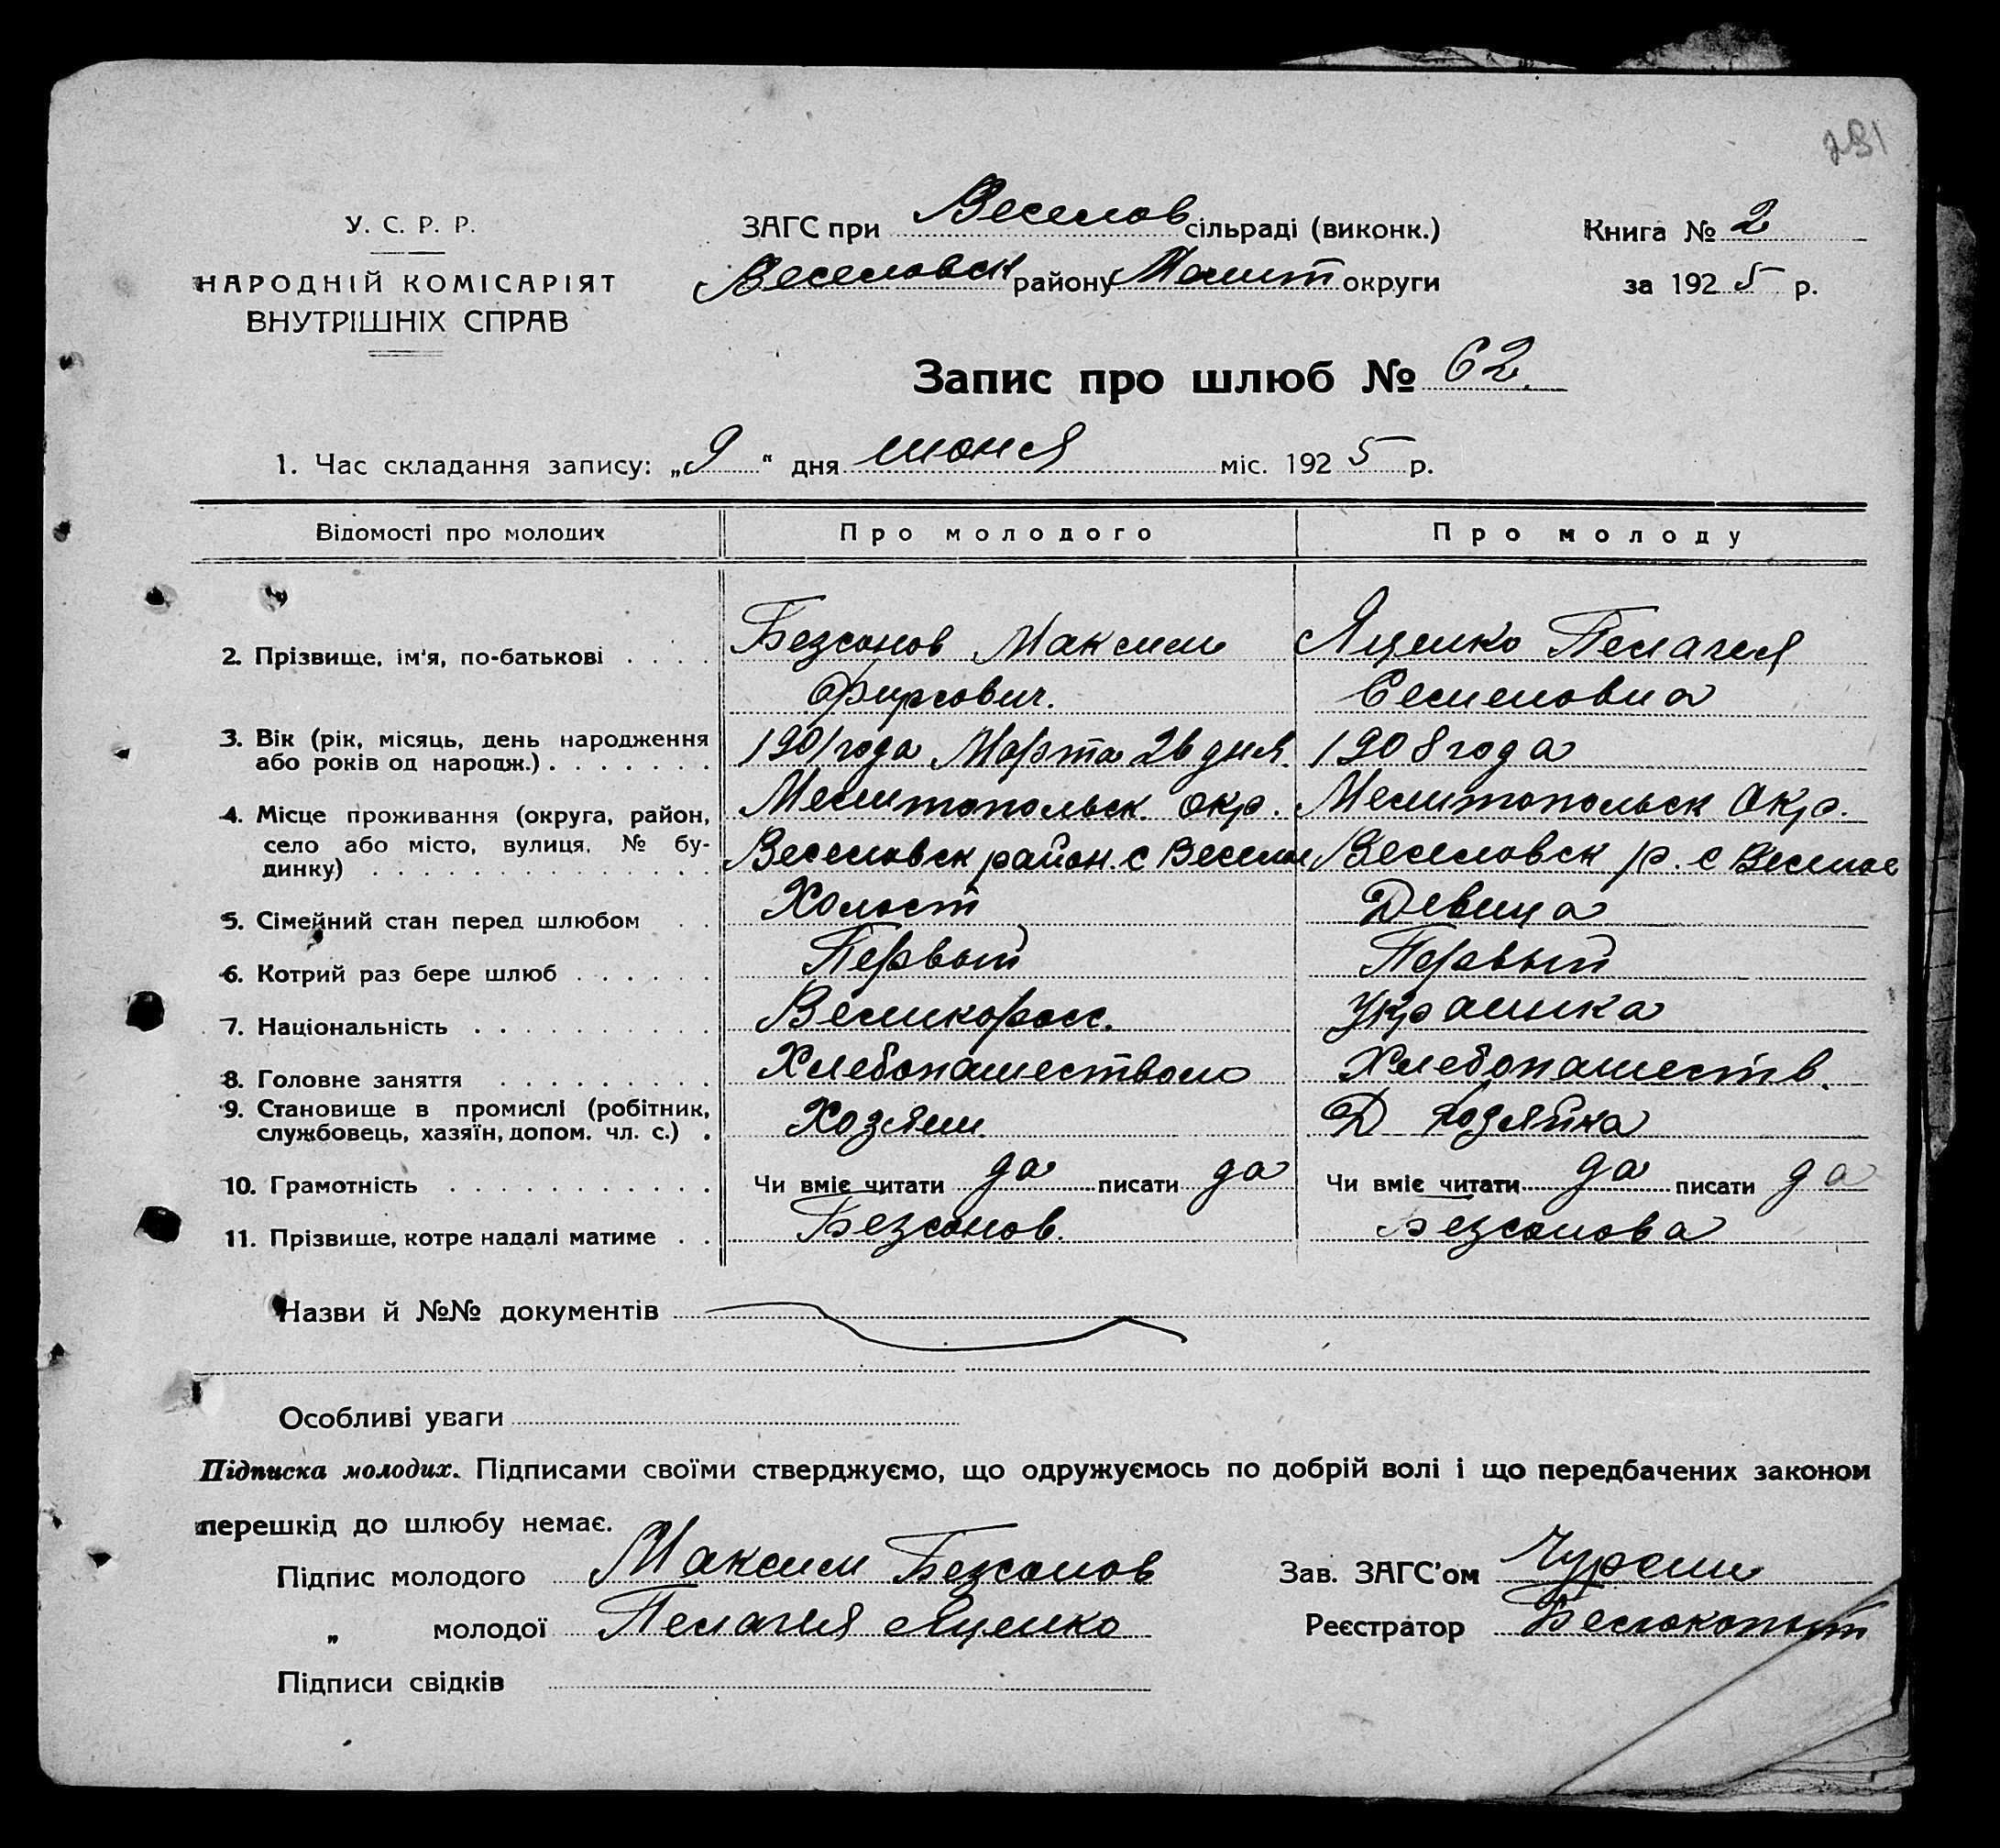 281
У. С. Р. Р.
НАРОДНІЙ КОМІСАРІЯТ
ВНУТРІШНІХ СПРАВ
ЗАГС при Веселов сільраді (виконк.)
Веселовск району Мелит округи
Книга № 2
за 1925 р.
Запис про шлюб № 62.
1. Час складання запису: „9" дня июня міс. 1925 р.
Відомості про молодих Про молодого Про молоду
2. Прізвище, ім'я, по-батькові . . . . Безсонов Максим Яценко Пелагея
Фирсович. Семеновна
3. Вік (рік, місяць, день народження 1901 года Марта 26 дня. 1908 года
або років од народж.) . . . . . . .
4. Місце проживання (округа, район, Мелитопольск. окр. Мелитопольск Окр.
село або місто, вулиця, № бу- Веселовск район. с Веселое Веселовск р. с Веселое
динку) . . . . . . . . . . . . . . .
5. Сімейний стан перед шлюбом . . Холост Девица
6. Котрий раз бере шлюб . . . . . . Первый Первый
7. Національність . . . . . . . . . . Великоросс. Украинка
8. Головне заняття . . . . . . . . . Хлебопашеством Хлебопашеств.
9. Становище в промислі (робітник, Хозяин Д Хозяйка
службовець, хазяїн, допом. чл. с.) .
10. Грамотність . . . . . . . . . . . Чи вміє читати да писати да Чи вміє читати да писати да
11. Прізвище, котре надалі матиме . . Безсонов. Безсонова
Назви й №№ документів
Особливі уваги
Підписка молодих. Підписами своїми стверджуємо, що одружуємось по добрій волі і що передбачених законом
перешкід до шлюбу немає.
Підпис молодого Максим Безсонов Зав. ЗАГС'ом
„ молодої Пелагея Яценко Реєстратор Белокопыт
Підписи свідків